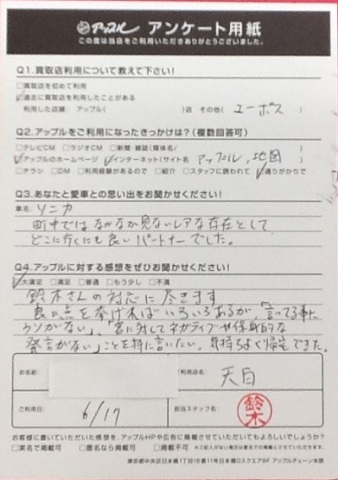 アップル アンケート用紙
この度は当店をご利用いただきありがとうございました。
Q1.買取店利用について教えて下さい!
□買取店を初めて利用
☑過去に買取店を利用したことがある
利用した店舗 アップル( )店 その他( ユーポス )
Q2.アップルをご利用になったきっかけは?(複数回答可)
□テレビCM □ラジオCM □新聞・雑誌(媒体名 )
☑アップルのホームページ ☑インターネット(サイト名 アップル, 地図 )
□チラシ □DM □利用経験があるので □紹介 □スタッフに誘われて ☑通りがかりで
Q3.あなたと愛車との思い出をお聞かせください!
車名: ソニカ
町中ではなかなか見ないレアな存在として
どこに行くにも良いパートナーでした。
Q4.アップルに対する感想をぜひお聞かせください!
☑大満足 □満足 □普通 □もう少し □不満
鈴木さんの対応に尽きます
良い点を挙げればいろいろあるが、「言ってる事に
ウソがない」、「客に対してネガティブや保身的な
発言がない」ことを特に言いたい。気持ちよく帰宅できた。
お名前
ご利用店名 天白
ご利用日 6/17
担当スタッフ名 鈴木
お客様に書いていただいた感想を、アップルHPや広告に掲載させていただいてもよろしいでしょうか?
□実名で掲載可 □匿名なら掲載可 □掲載不可